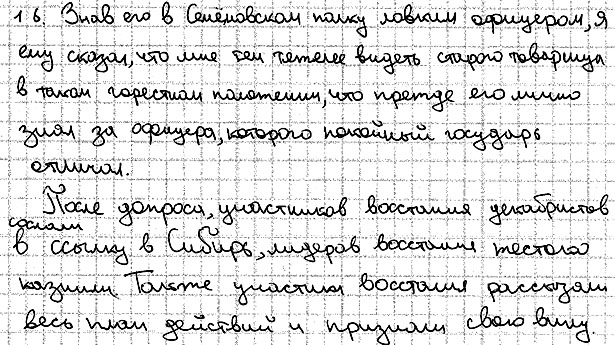 1 б. Знав его в Семёновском полку ловким офицером, я
ему сказал, что мне тем тяжелее видеть старого товарища
в таком горестном положении, что прежде его лично
знал за офицера, которого покойный государь
отличал.
После допроса, участников восстания декабристов
сослали
в ссылку в Сибирь, лидеров восстания жестоко
казнили. Также участники восстания рассказали
весь план действий и признали свою вину.